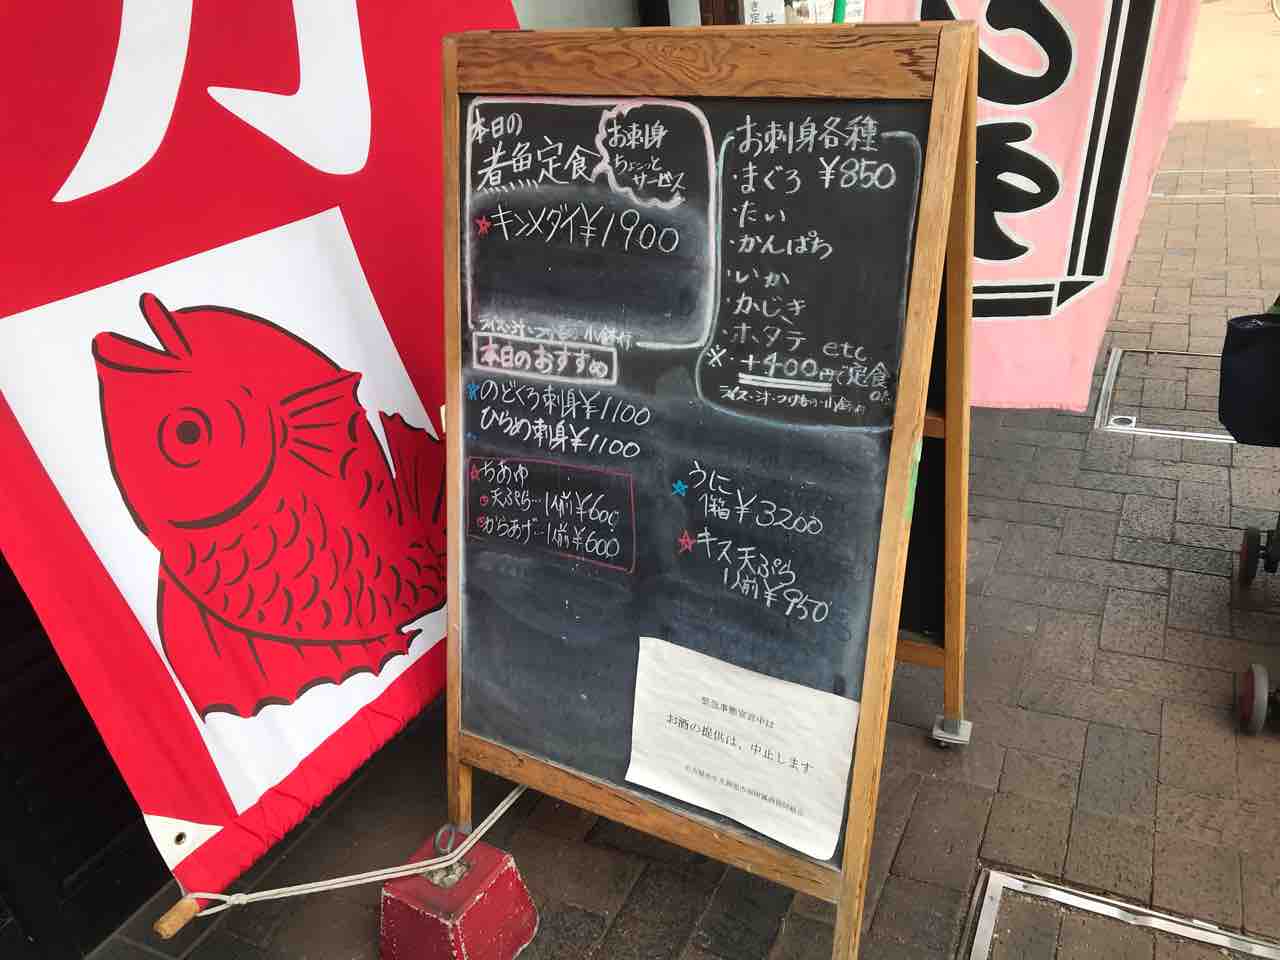 本日の
煮魚定食
お刺身
ちょこっと
サービス
★キンメダイ¥1900
ライス・汁・つけもの・小鉢付
本日のおすすめ
★のどぐろ刺身¥1100
ひらめ刺身¥1100
☆ちあゆ
天ぷら…1人前¥600
からあげ…1人前¥600
お刺身各種
・まぐろ ¥850
・たい
・かんぱち
・いか
・かじき
・ホタテ etc
※ +400円で定食
ライス・汁・つけもの・小鉢付
★うに
1箱¥3200
★キス天ぷら
1人前¥950
緊急事態宣言中は
お酒の提供は、中止します